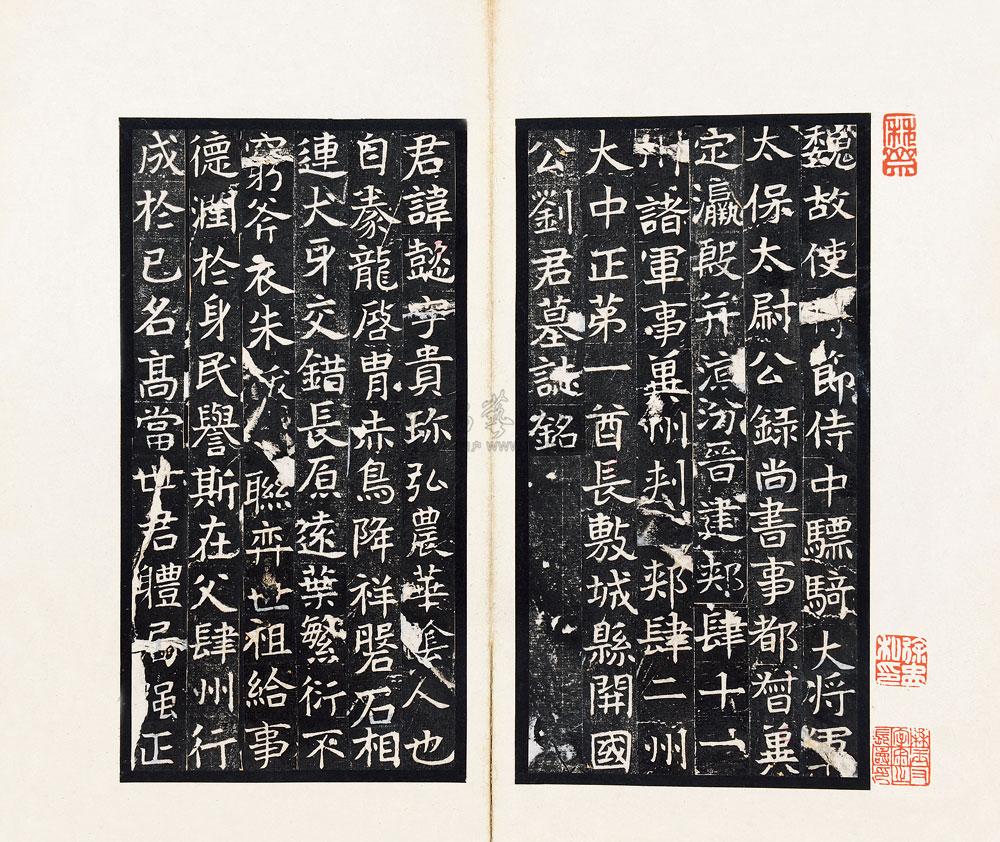 魏故使持節侍中驃騎大將軍
太保太尉公錄尚書事都督冀
定瀛殷并涼汾晉建郟肆十一
州諸軍事冀州刾郟肆二州
大中正苐一酋長敷城縣開國
公劉君墓誌銘
君諱懿字貴珍弘農華陰人也
自豢龍啓胄赤鳥降祥磐石相
連犬牙交錯長原遠葉繁衍不
窮斧衣朱紱聯弈世祖給事
德潤於身民譽斯在父肆州行
成於己名高當世君體局强正